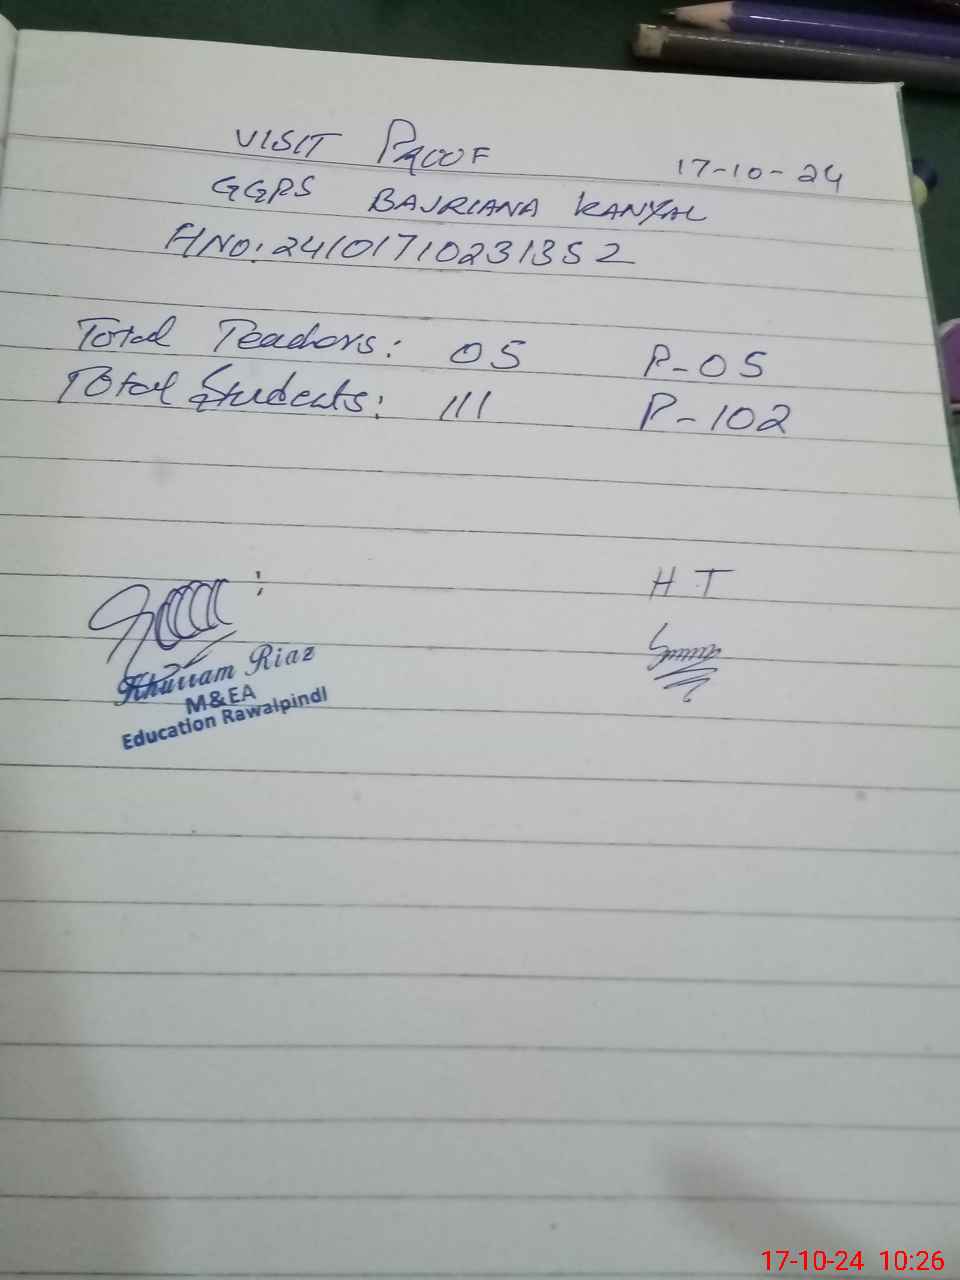 VISIT PROOF 17-10-24
GGPS BAJRIANA KANYAL
A1NO: 24101710231352
Total Teachers: 05 P-05
Total Students: 111 P-102
H T
Khurram Riaz
M&EA
Education Rawalpindi
17-10-24 10:26